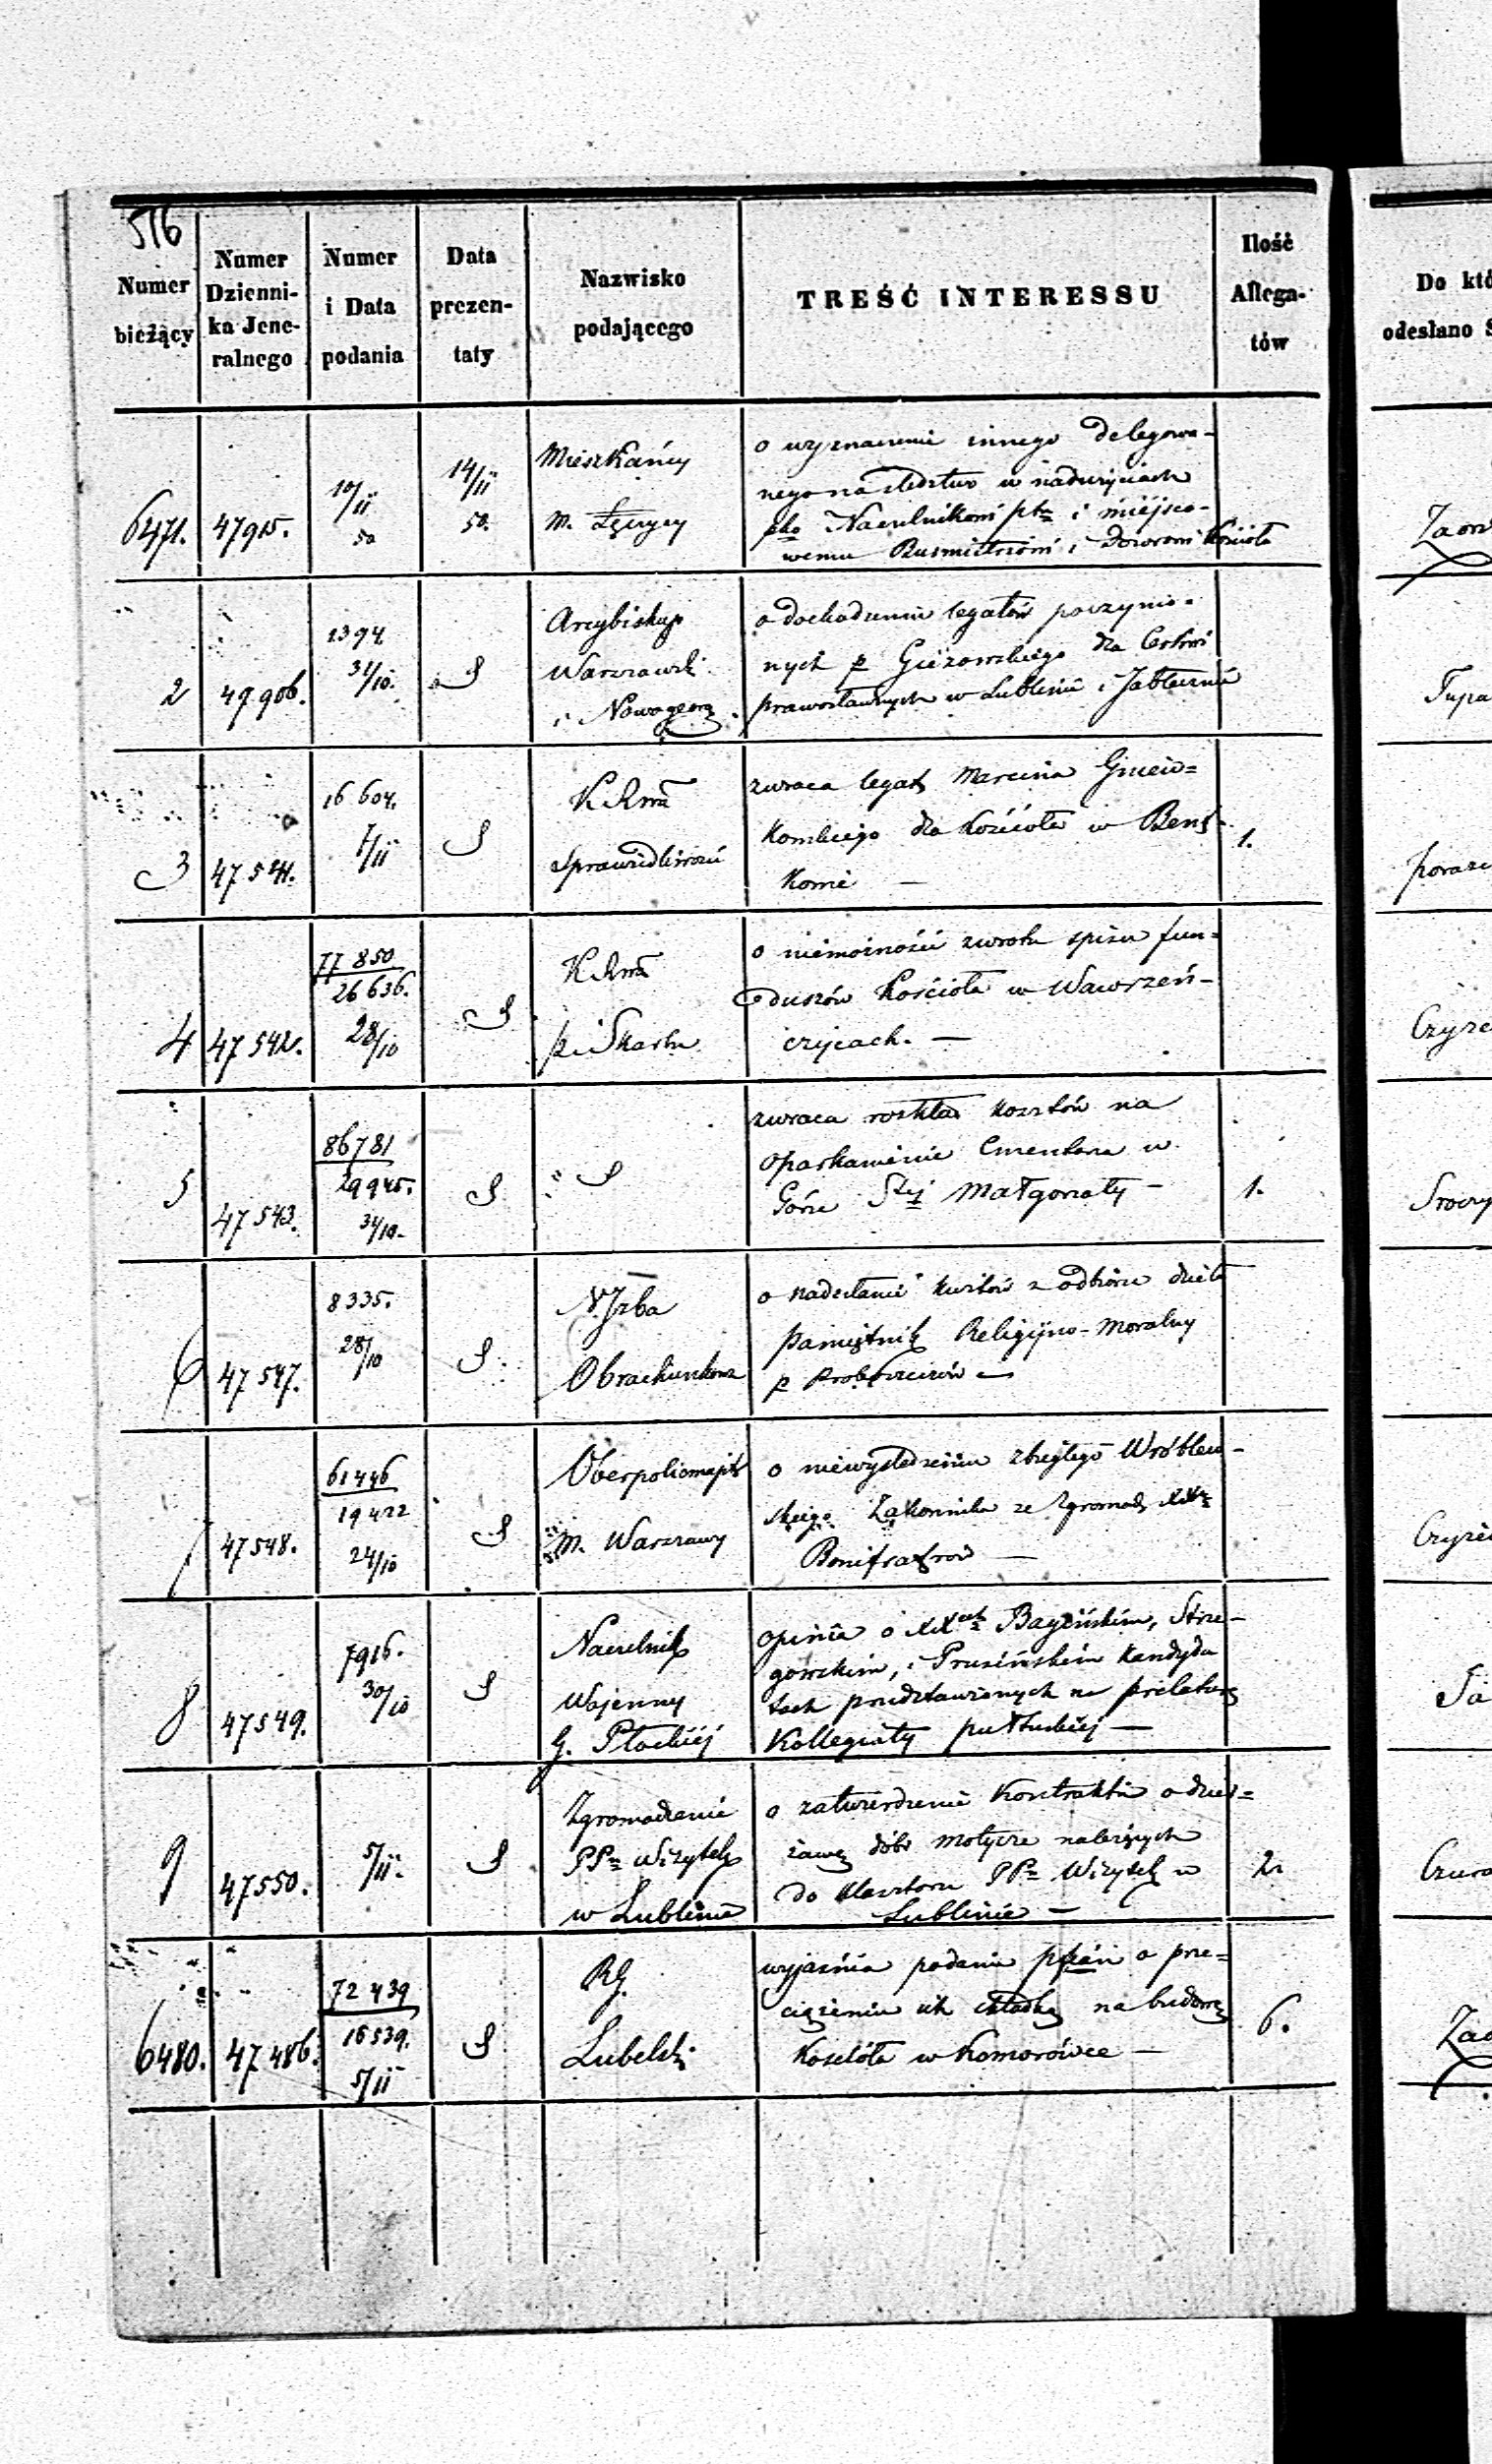 516
Numer bieżący
Numer Dzienni-ka Jene-ralnego
Numer i Data podania
Data prezen-taty
Nazwisko podającego
TREŚĆ INTERESSU
Ilość Allega-tów
Do któ
odesłano S
6471.
47915.
10/11
50
14/11
50.
Mieszkańcy
m. Łęczycy
o wyznaczenie innego delegowa-
nego na śledztwo w nadużyciach
pko Naczelnikowi ptu i miejsco-
wemu Burmistrzowi i Dozorowi Kościoła
2
1394
31/10.
S
Arcybiskup
Warszawski
i Nowogeorg.
o dochodzeniu legatów poczynio-
nych p dla Cerkwi
prawosławnych w Lublinie i Jabłecznie
3
47541.
16604.
7/11
S
K Rzą
Sprawiedliwości
zwraca legat Marcina Gniew-
kowskiego dla Kościoła w
1.
4
47542.
77850
26636.
28/10
S
K Rzą
p. i Skarbu
o niemożności zwrotu spisu fun-
duszów Kościoła w Wawrzeń-
czycach. —
Czyże
5
47543.
86781
29945.
31/10.
S
S
zwraca rozkład kosztów na
oparkanienie Cmentarza w
Górze Stej Małgorzaty —
1.
6
47547.
8335.
28/10
S
N. Izba
Obrachunkowa
o nadesłanie kwitów z odbioru dzieła
Pamiętnik Religijno-Moralny
p Proboszczów —
7
47548.
61446
19422
24/10
S
Oberpolicmajstr
m. Warszawy
o niewyśledzeniu zbiegłego Wróblew-
skiego Zakonnika ze Zgromadz XXy
Bonifratrów —
8
47549.
7916.
30/10
S
Naczelnik
Wojenny
G. Płockiej
opinia o XXach Strze-
gowskim, i Prusińskim kandyda
tach przedstawionych na prelaturę
Kollegiaty pułtuskiej —
9
47550.
5/11.
S
Zgromadzenie
PPn Wizytek
w Lublinie
o zatwierdzenie kontraktu o dzier-
żawę dóbr Motycze należących
do klasztoru PPn Wizytek w
Lublinie —
2.
6480.
47486.
72439
16539.
5/11
S
RG.
Lubelski
wyjaśnia podanie o prze-
ciążeniu ich składką na budowę
Kościoła w Komorówce —
6.